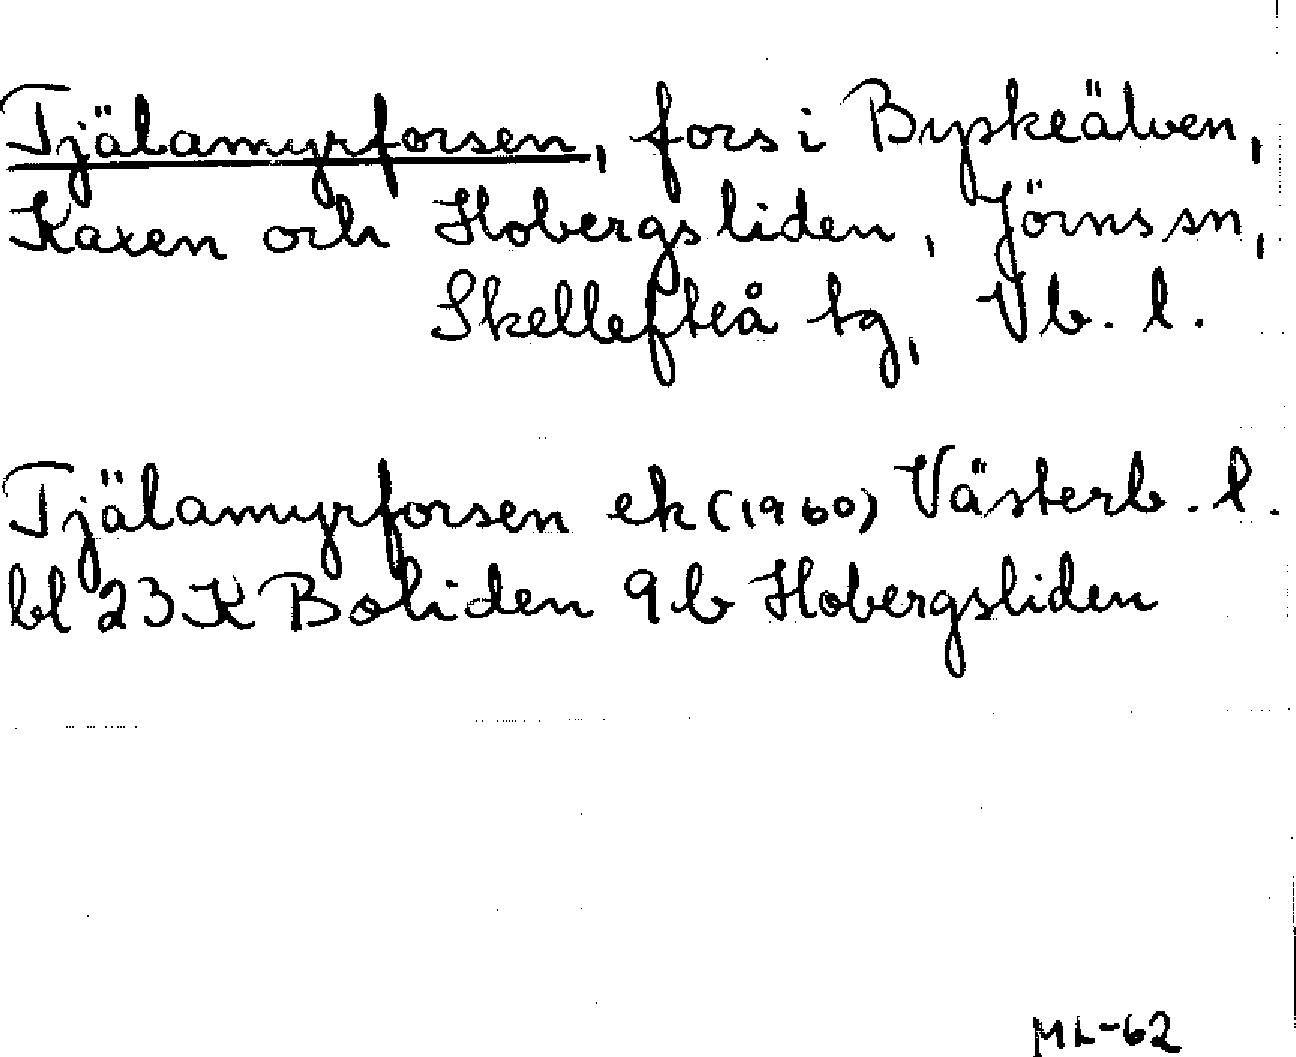 Tjälamyrforsen, fors i Byskeälven,
Kaxen och Hobergsliden, Jörns sn,
Skellefteå tg, Vb. l.
Tjälamyrforsen ek (1960) Västerb. l.
bl 23 K Boliden 9b Hobergsliden
ML-62